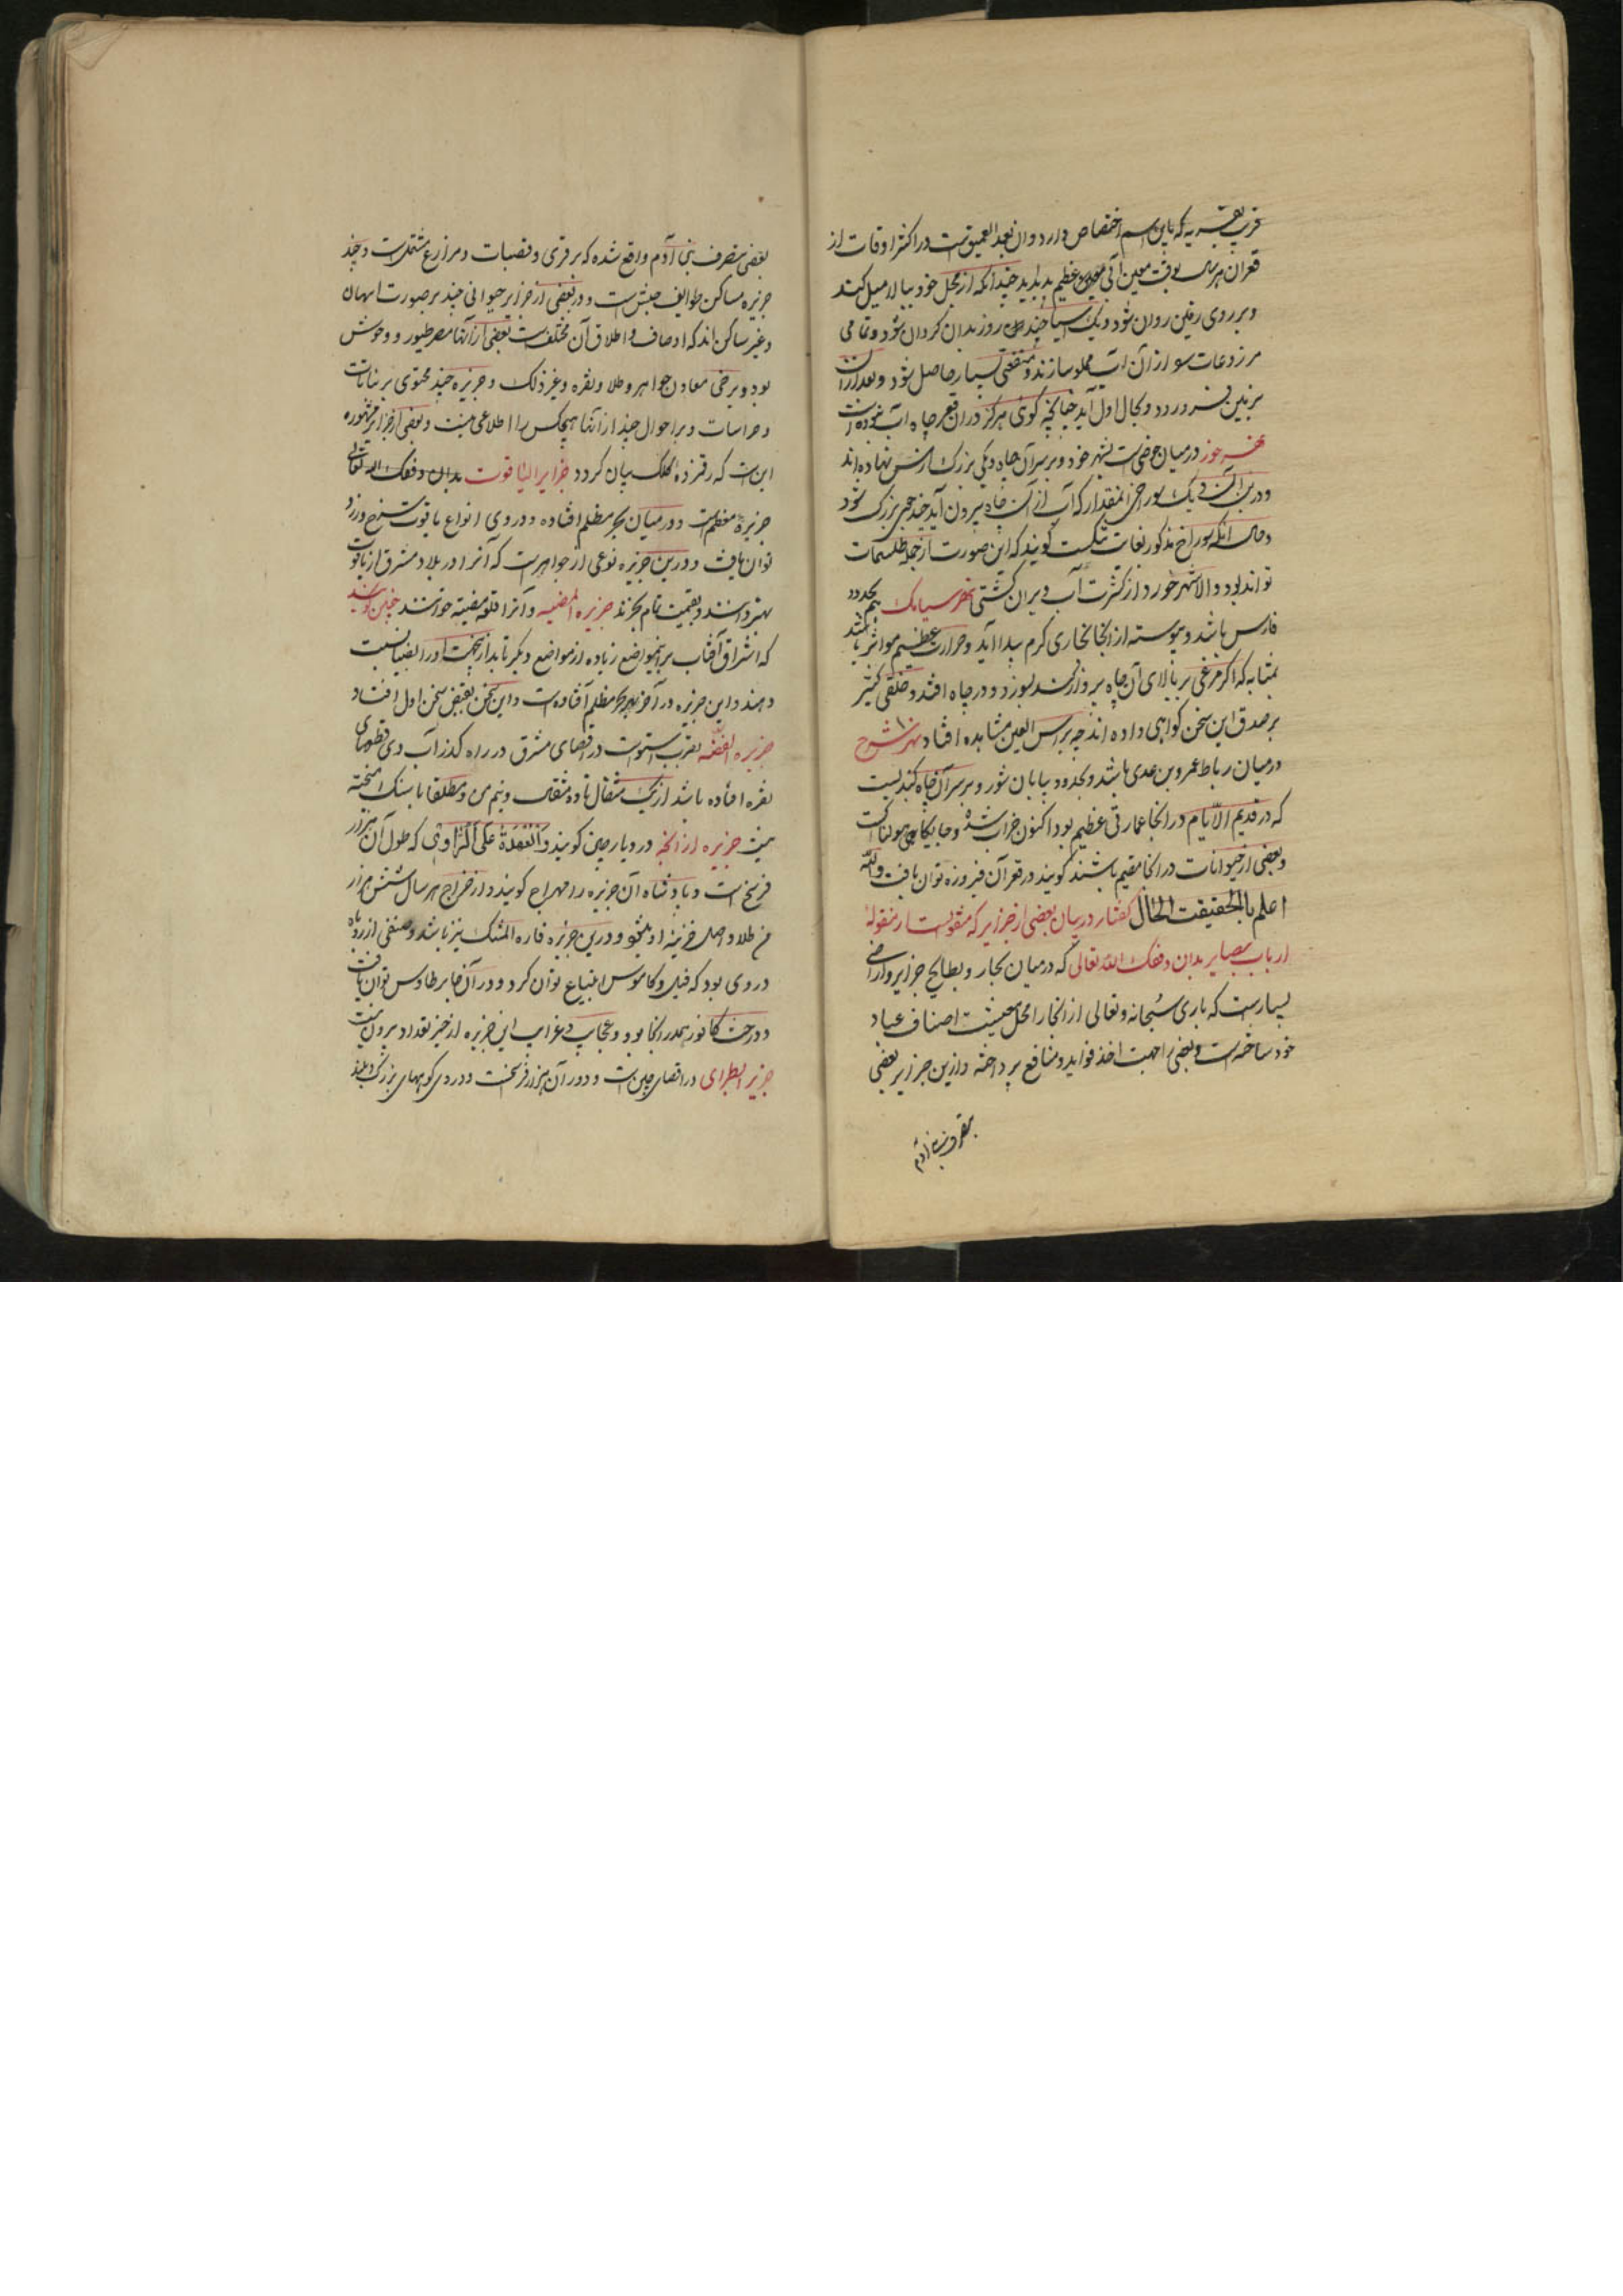 قریه که باین اسم اختصاص دارد و آن بعید العمیق است در اکثر اوقات از
قعر آن هر سال بوقت معین آبی عظیم پدید آید چندانکه از محل خود ببالا میل کند
و بر روی زمین روان شود و یک آسیا چند روز بدان گردان شود و تمامی
مزروعات سو از آن آب مملو سازند و منفعتی بسیار حاصل شود و بعد از آن
بزمین فرو رود و بحال اول آید چنانچه گوئی هرگز در آن قعر چاه آب نبوده است
در میان حوضی است بشهر خود و بر سر آن چاه دیگی بزرگ از مس نهاده اند
و در بن آن دیگ سوراخی آنمقدار که آب از آن چاه بیرون آید چند جوئی بزرگ شود
و حال آنکه سوراخ مذکور بغایت تنگست گویند که این صورت از جمله طلسمات
تواند بود و الا شهر خورد از کثرت آب ویران گشتی نهر سیامک بحدود
فارس باشد و پیوسته از آنجا بخاری گرم پیدا آید و حرارت عظیم مؤثر باشد
بمثابه که اگر مرغی بر بالای آن چاه پرواز کند بسوزد و در چاه افتد و خلقی کثیر
بر صدق این سخن گواهی داده اند چه براس العین مشاهده افتاد نهر شرح
در میان رباط عمرو بن عدی باشد و بحدود بیابان شور و بر سر آن چاه گنبدیست
که در قدیم الایام در آنجا عمارتی عظیم بود اکنون خراب شده و جایگاهی هولناکست
و بعضی از حیوانات در آنجا مقیم باشند گویند در قعر آن فیروزه توان یافت والله
اعلم بالحقیقت الحال گفتار در بیان بعضی از جزایر که مقولست از منقوله
ارباب بصایر بدان وفقک الله تعالی که در میان بحار و بطایح جزایر و اراضی
بسیارست که باری سبحانه و تعالی از آنجا را محل معیشت اصناف عباد
خود ساخته است و بعضی را جهت اخذ فواید و منافع پرداخته و ازین جزایر بعضی
بتصرف بنی آدم
بعضی بتصرف بنی آدم واقع شده که بر قری و قصبات و مزارع مشتمل است و چند
جزیره مساکن طوایف جنس است و در بعضی از جزایر حیوانی چند بر صورت انسان
و غیر ساکن اند که اوصاف و اخلاق آن مختلف است بعضی از آنها مصر طیور و وحوش
بود و برخی معادن جواهر و طلا و نقره و غیر ذلک و جزیره چند محتوی بر نباتات
و حراسات و بر احوال چند از آنها هیچکس را اطلاعی نیست و بعضی از جزایر مشهوره
این است که رقمزده کلک بیان گردد جزایر الیاقوت بدان وفقک الله تعالی
جزیره معظم است و در میان بحر مظلم افتاده و در وی انواع یاقوت سرخ و زرد
توان یافت و درین جزیره نوعی از جواهرست که آنرا در بلاد مشرق از یاقوت
بهتر دانند و بقیمت تمام بخرند جزیره المضییه و آنرا قلعه مضیئه خوانند چنین گویند
که اشراق آفتاب بر این مواضع زیاده از مواضع دیگر تابد از این جهت او را بضیا نسبت
دهند و این جزیره در آخر بحر مظلم افتاده است و این سخن نقیض سخن اول افتاد
جزیره الفضه بقرب استواست در اقصای مشرق در راه گذر آب وی قطعهای
نقره افتاده باشد از یک مثقال تا ده مثقال و نیم من و مطلقا با سنگ آمیخته
نیست جزیره زابجه در دیار چین گویند والعهدة علی الراوی که طول آن هزار
فرسخ است و پادشاه آن جزیره را مهراج گویند و از خراج هر سال شش هزار
من طلا داخل خزینه او شود و درین جزیره فاره المشک نیز باشد و صنفی از روباه
در وی بود که فیل و گاومیش ابتیاع توان کرد و در آن جزایر طاوس توان یافت
و درخت کافور هم در آنجا بود و عجایب و غرایب این جزیره از حیز تعداد بیرون است
جزیر البطرای در اقصای چین است و دور آن هزار فرسخست و در وی کوههای بزرگ و بلند